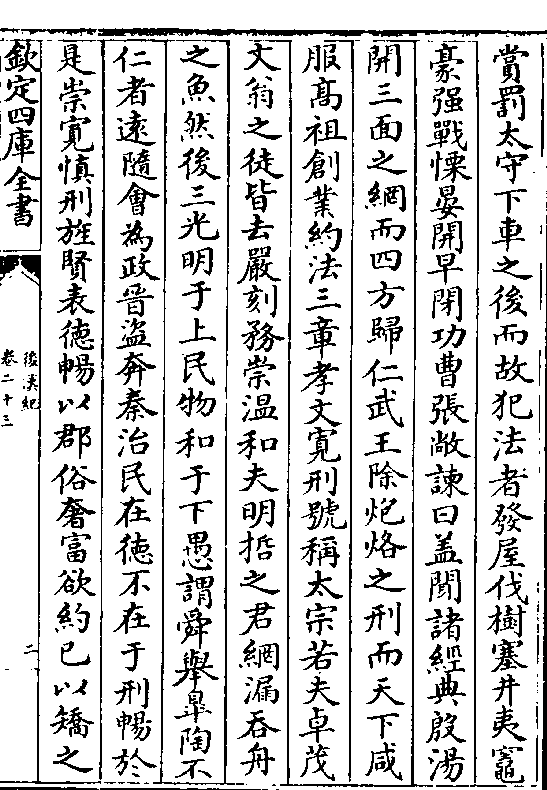 賞罰太守下車之後而故犯法者發屋伐樹塞井夷竈
豪强戰慄晏開早閉功曹張敞諫曰盖聞諸經典殷湯
開三面之網而四方歸仁武王除炮烙之刑而天下咸
服髙祖創業約法三章孝文寛刑號稱太宗若夫卓茂
文翁之徒皆去嚴刻務崇温和夫明哲之君網漏吞舟
之魚然後三光明于上民物和于下愚謂舜舉臯陶不
仁者逺隨㑹為政晉盜奔秦治民在徳不在于刑暢於
是崇寛慎刑旌賢表徳暢以郡俗奢富欲約已以矯之
欽定四庫全書
後漢紀
卷二十三
二